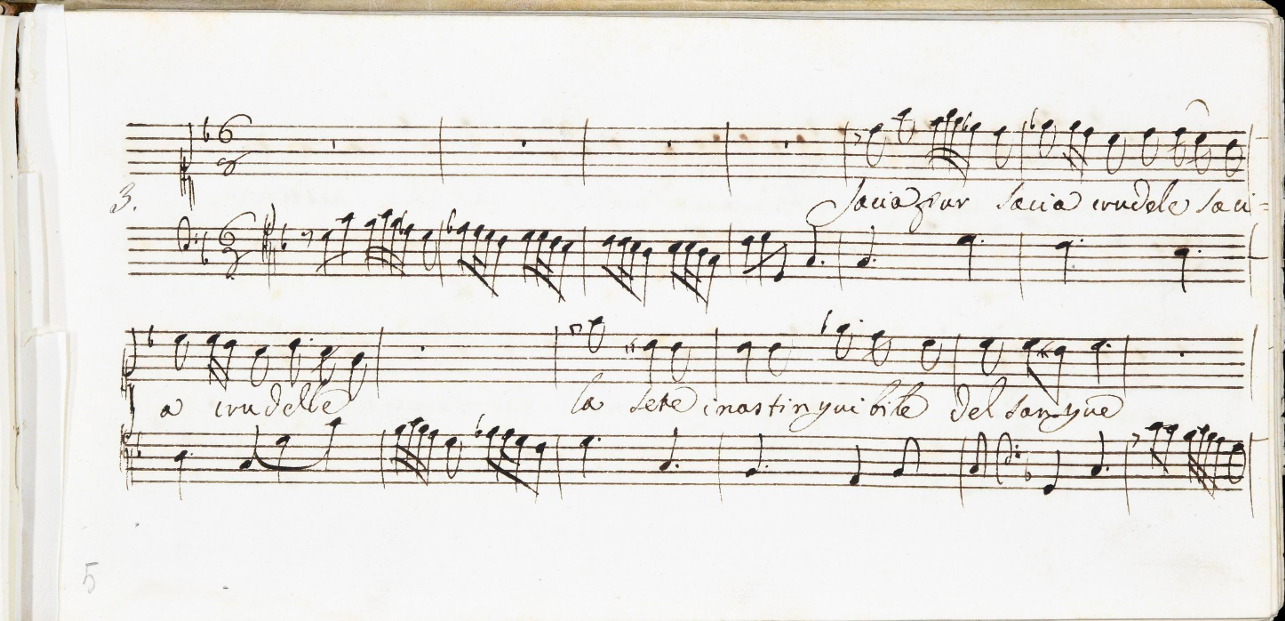 3.
Saciati pur sacia crudele saci=
a crudelle la sete inastinguibile del sangue
5